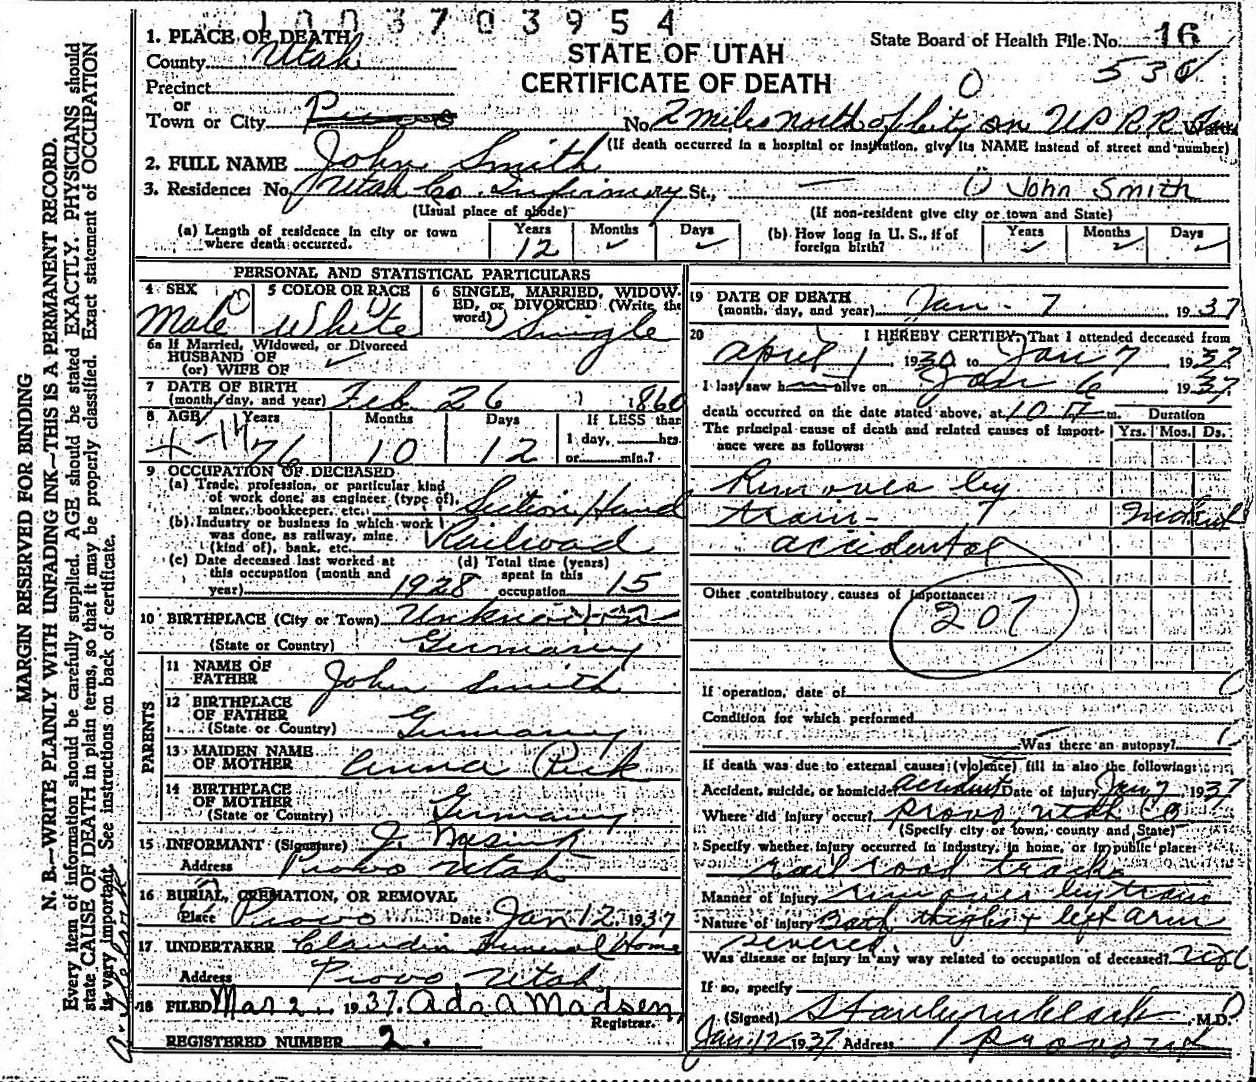 1003703954
1. PLACE OF DEATH
County Utah
Precinct
or
Town or City Provo
STATE OF UTAH
CERTIFICATE OF DEATH
State Board of Health File No. 16
530
No. 2 miles north of City on U P R R Ward
(If death occurred in a hospital or institution, give its NAME instead of street and number)
2. FULL NAME John Smith
3. Residence: No. Utah Co. Infirmary St., John Smith
(Usual place of abode) (If non-resident give city or town and State)
(a) Length of residence in city or town where death occurred. Years 12 Months Days
(b) How long in U. S., if of foreign birth? Years Months Days
PERSONAL AND STATISTICAL PARTICULARS
4 SEX Male
5 COLOR OR RACE White
6 SINGLE, MARRIED, WIDOWED, or DIVORCED (Write the word) Single
6a If Married, Widowed, or Divorced
HUSBAND OF
(or) WIFE OF
7 DATE OF BIRTH
(month, day, and year) Feb 26 1860
8 AGE Years 76 Months 10 Days 12 If LESS than
1 day, hrs.
or min.?
9 OCCUPATION OF DECEASED
(a) Trade, profession, or particular kind of work done, as engineer (type of), miner, bookkeeper, etc. Section Hand
(b) Industry or business in which work was done, as railway, mine (kind of), bank, etc. Railroad
(c) Date deceased last worked at this occupation (month and year) 1928
(d) Total time (years) spent in this occupation 15
10 BIRTHPLACE (City or Town) Unknown
(State or Country) Germany
PARENTS
11 NAME OF FATHER John Smith
12 BIRTHPLACE OF FATHER
(State or Country) Germany
13 MAIDEN NAME OF MOTHER Anna
14 BIRTHPLACE OF MOTHER
(State or Country) Germany
15 INFORMANT (Signature) J.
Address Provo Utah
16 BURIAL, CREMATION, OR REMOVAL
Place Provo Date Jan 12 1937
17. UNDERTAKER Claudin Funeral Home
Address Provo Utah
18 FILED Mar 2. 1937. Ada A Madsen,
Registrar.
REGISTERED NUMBER 2.
19 DATE OF DEATH
(month, day, and year) Jan - 7 1937
20 I HEREBY CERTIFY, That I attended deceased from
April 1 1930 to Jan 7 1937
I last saw h alive on Jan 6 1937
death occurred on the date stated above, at 10 m. Duration
The principal cause of death and related causes of importance were as follows: Yrs. Mos. Ds.
by
train -
accidental
Other contributory causes of importance:
207
If operation, date of
Condition for which performed
Was there an autopsy?
If death was due to external causes (violence) fill in also the following:
Accident, suicide, or homicide accident Date of injury Jan 7 1937
Where did injury occur? Provo, Utah Co
(Specify city or town, county and State)
Specify whether injury occurred in industry, in home, or in public place:
railroad track
Manner of injury by train
Nature of injury Both thighs + left arm
severed.
Was disease or injury in any way related to occupation of deceased?
If so, specify
(Signed) M.D.
Jan. 12 1937 Address Provo Ut
MARGIN RESERVED FOR BINDING
N. B.—WRITE PLAINLY WITH UNFADING INK—THIS IS A PERMANENT RECORD.
Every item of information should be carefully supplied. AGE should be stated EXACTLY. PHYSICIANS should
state CAUSE OF DEATH in plain terms, so that it may be properly classified. Exact statement of OCCUPATION
is very important. See instructions on back of certificate.